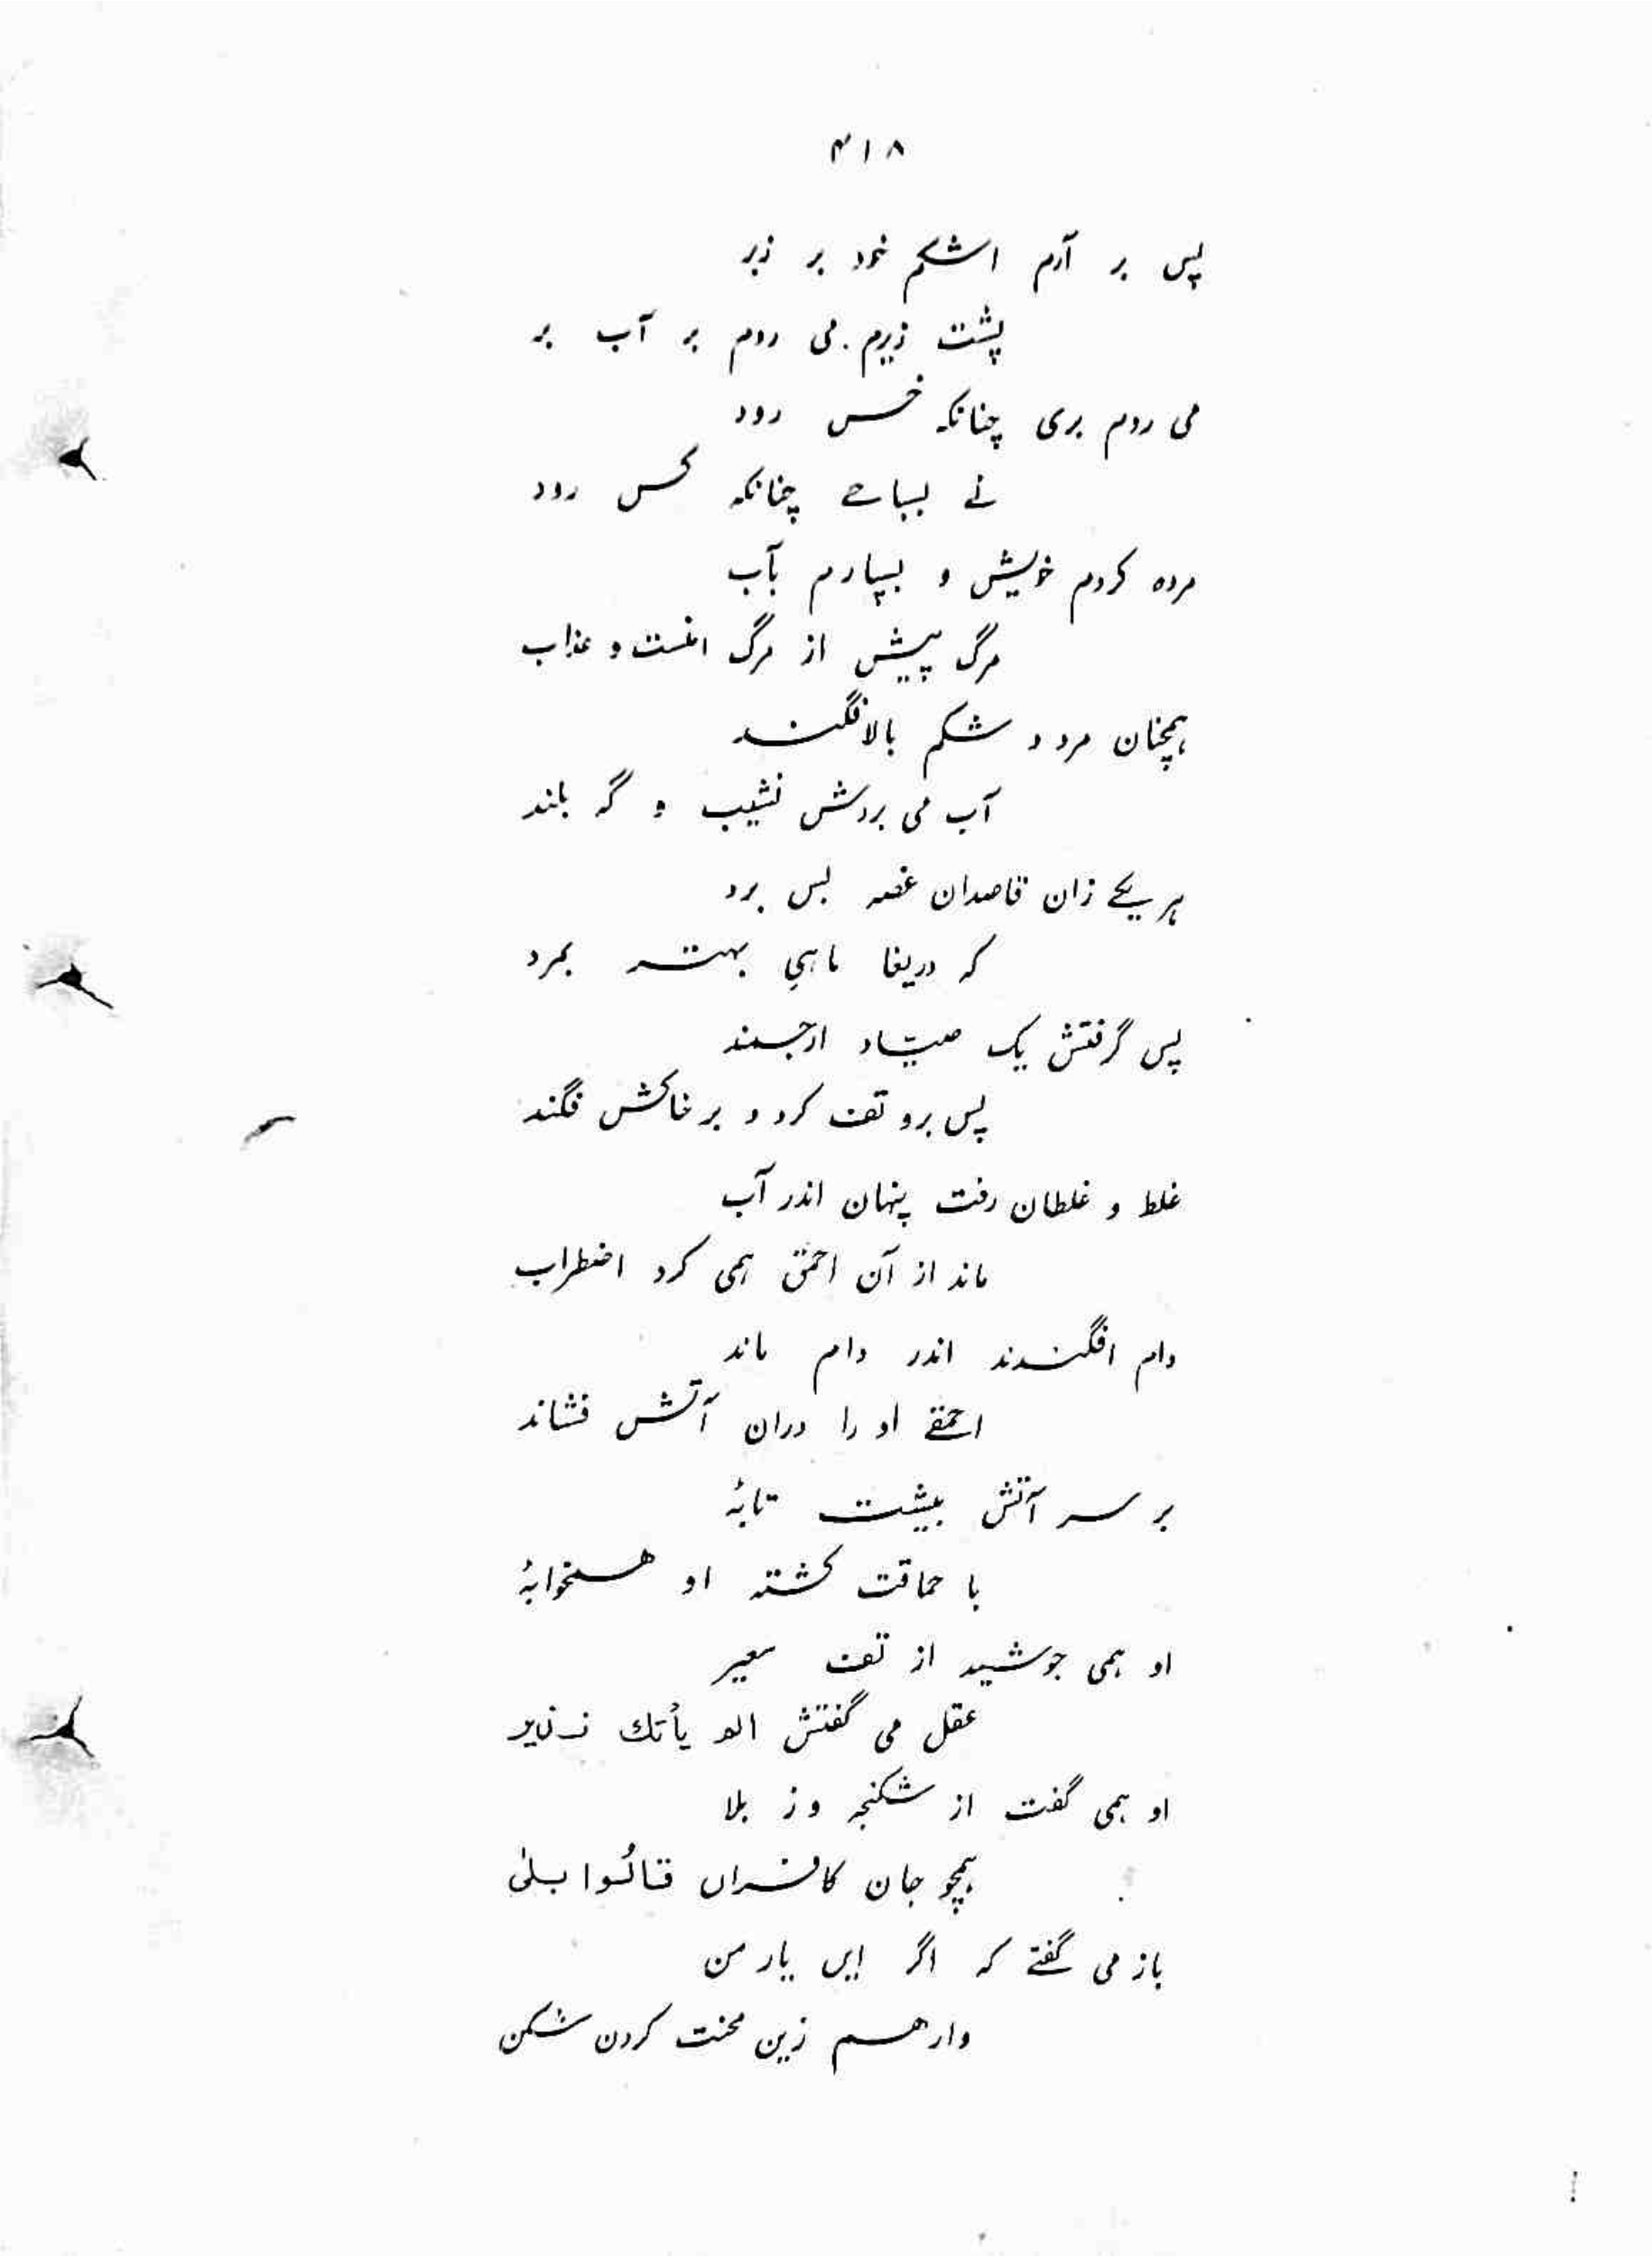 ۴۱۸
پس بر آرم اشکم خود بر زبر
پشت زیرم. می روم بر آب بر
می روم بری چنانکہ خس رود
نے بسباحے چنانکہ کس رود
مردہ کردم خویش و بسپارم بآب
مرگ پیش از مرگ امنست و عذاب
ہمچنان مرد و شکم بالا فگند
آب می بردش نشیب و گہ بلند
ہر یکے زان قاصدان غصہ بس برد
کہ دریغا ماہیِ بہتر بمرد
پس گرفتش یک صیّاد ارجمند
پس برو تف کرد و بر خاکش فگند
غلط و غلطان رفت پنہان اندر آب
ماند از آن احمق ہمی کرد اضطراب
دام افگندند اندر دام ماند
احمقے او را دران آتش فشاند
بر سر آتش بپشت تابۂ
با حماقت گشتہ او ہمخوابۂ
او ہمی جوشید از تف سعیر
عقل می گفتش الم یأتك نذیر
او ہمی گفت از شکنجہ وز بلا
ہمچو جان کافراں قالُوا بلیٰ
باز می گفتے کہ اگر ایں بار من
وارہم زین محنت کردن شکن